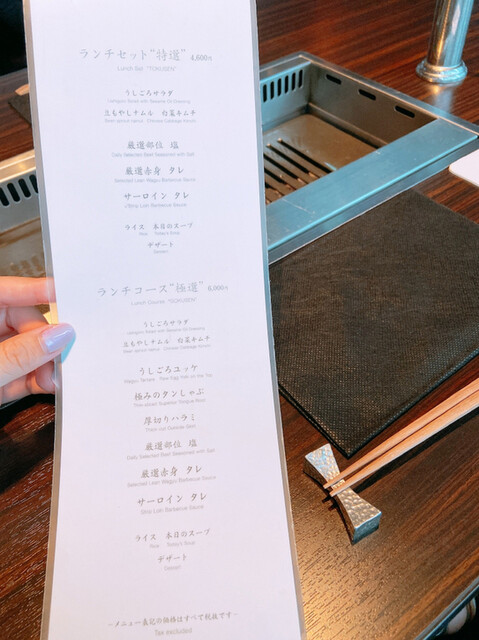 ランチセット“特選” 4,600円
Lunch Set "TOKUSEN"
うしごろサラダ
立もやしナムル 白菜キムチ
Bean sprout namul, Chinese Cabbage kimchi
厳選部位 塩
Daily Selected Beef Seasoned with Salt
厳選赤身 タレ
Selected Lean Wagyu Barbecue Sauce
サーロイン タレ
Sirloin Barbecue Sauce
ライス 本日のスープ
Rice Today's Soup
デザート
Dessert
ランチコース“極選” 8,000円
うしごろサラダ
立もやしナムル 白菜キムチ
Bean sprout namul, Chinese Cabbage kimchi
うしごろユッケ
極みのタンしゃぶ
厚切りハラミ
Thick-cut Outside Skirt
厳選部位 塩
Daily Selected Beef Seasoned with Salt
厳選赤身 タレ
Selected Lean Wagyu Barbecue Sauce
サーロイン タレ
Sirloin Barbecue Sauce
ライス 本日のスープ
Rice Today's Soup
デザート
Dessert
－メニュー表記の価格はすべて税抜です－
Tax excluded